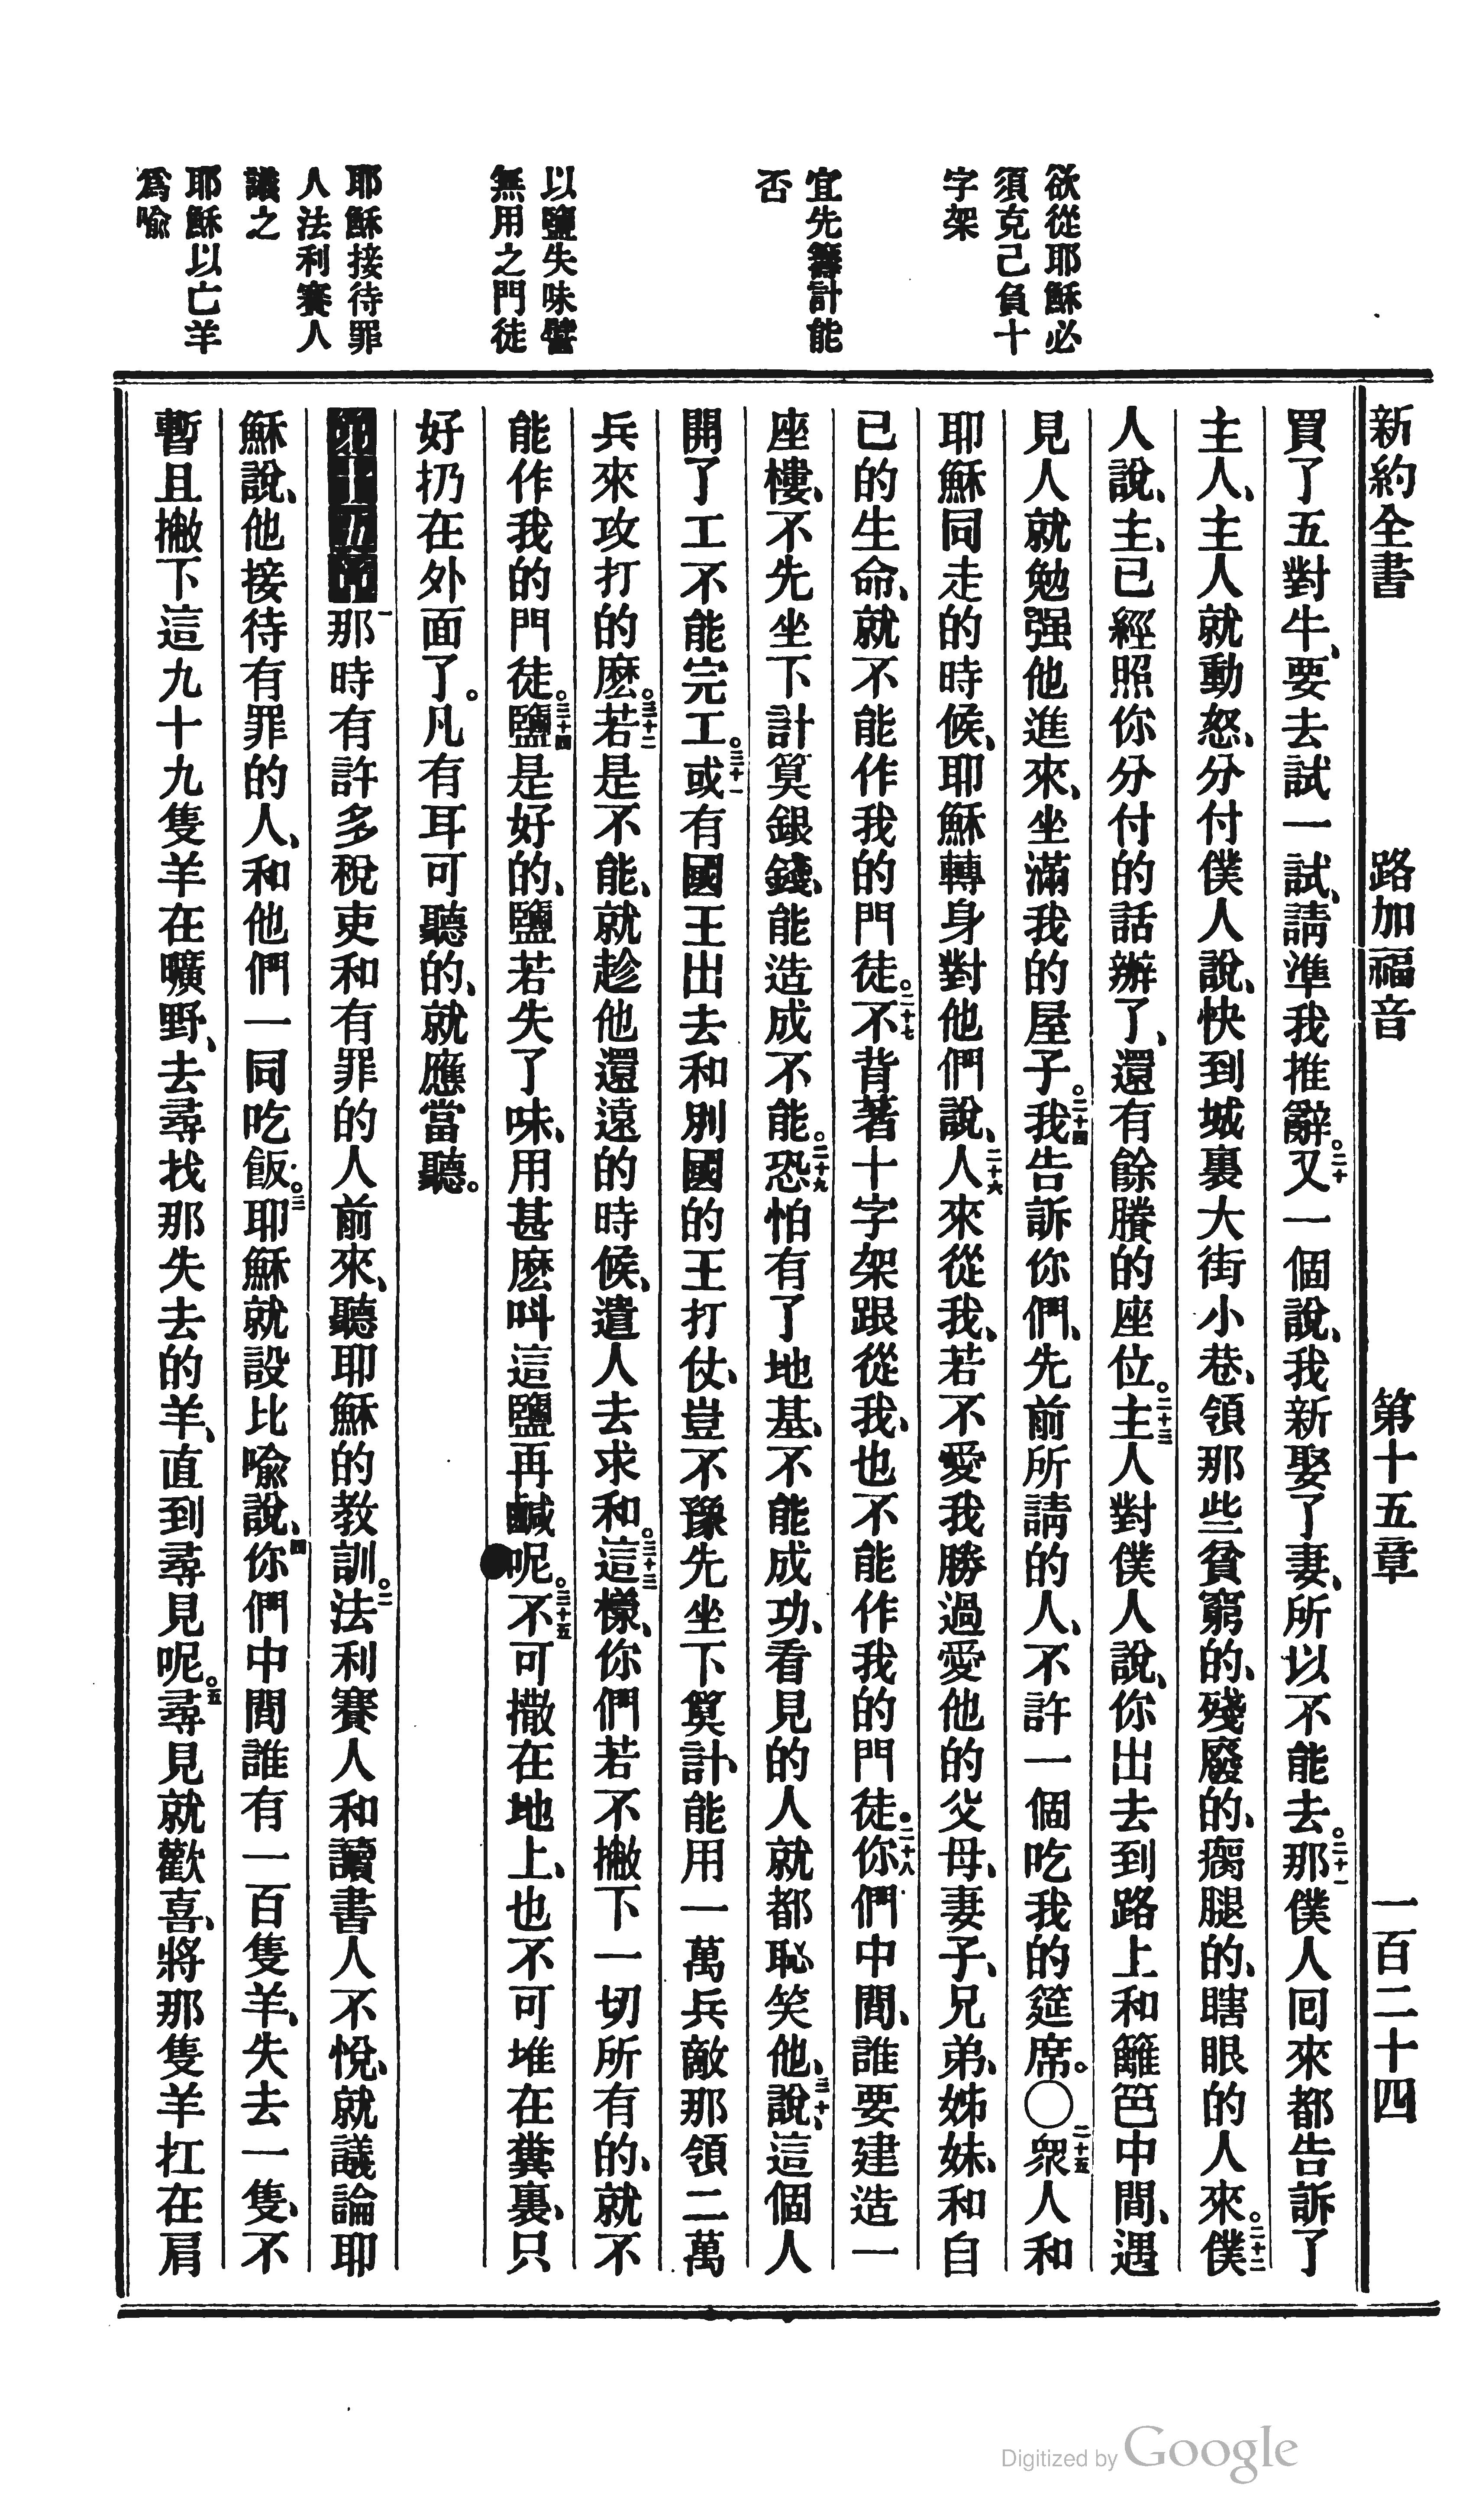 欲從耶穌必
須克己負十
字架
宜先籌計能
否
以鹽失味譬
無用之門徒
耶穌接待罪
人法利賽人
議之
耶穌以亡羊
爲喻
新約全書 路加福音 第十五章 一百二十四
買了五對牛、要去試一試、請準我推辭。二十又一個說、我新娶了妻、所以不能去。二十一那僕人回來都告訴了
主人、主人就動怒、分付僕人說、快到城裏大街小巷、領那些貧窮的、殘廢的、瘸腿的、瞎眼的人來。二十二僕
人說、主、已經照你分付的話辦了、還有餘賸的座位。二十三主人對僕人說、你出去到路上和籬笆中間、遇
見人就勉强他進來、坐滿我的屋子。二十四我告訴你們、先前所請的人、不許一個吃我的筵席。〇二十五衆人和
耶穌同走的時候、耶穌轉身對他們說、二十六人來從我、若不愛我勝過愛他的父母、妻子、兄弟、姊妹、和自
己的生命、就不能作我的門徒。二十七不背著十字架跟從我、也不能作我的門徒。二十八你們中間、誰要建造一
座樓、不先坐下計算銀錢、能造成不能。二十九恐怕有了地基、不能成功、看見的人就都恥笑他、三十說、這個人
開了工不能完工。三十一或有國王出去和別國的王打仗、豈不豫先坐下算計、能用一萬兵敵那領二萬
兵來攻打的麽。三十二若是不能、就趁他還遠的時候、遣人去求和。三十三這樣、你們若不撇下一切所有的、就不
能作我的門徒。三十四鹽是好的、鹽若失了味、用甚麽叫這鹽再鹹呢。三十五不可撒在地上、也不可堆在糞裏、只
好扔在外面了。凡有耳可聽的、就應當聽。
一那時有許多稅吏和有罪的人前來、聽耶穌的教訓。二法利賽人和讀書人不悅、就議論耶
穌說、他接待有罪的人、和他們一同吃飯。三耶穌就設比喻說、四你們中間誰有一百隻羊、失去一隻、不
暫且撇下這九十九隻羊在曠野、去尋找那失去的羊、直到尋見呢。五尋見就歡喜、將那隻羊扛在肩
Digitized by Google